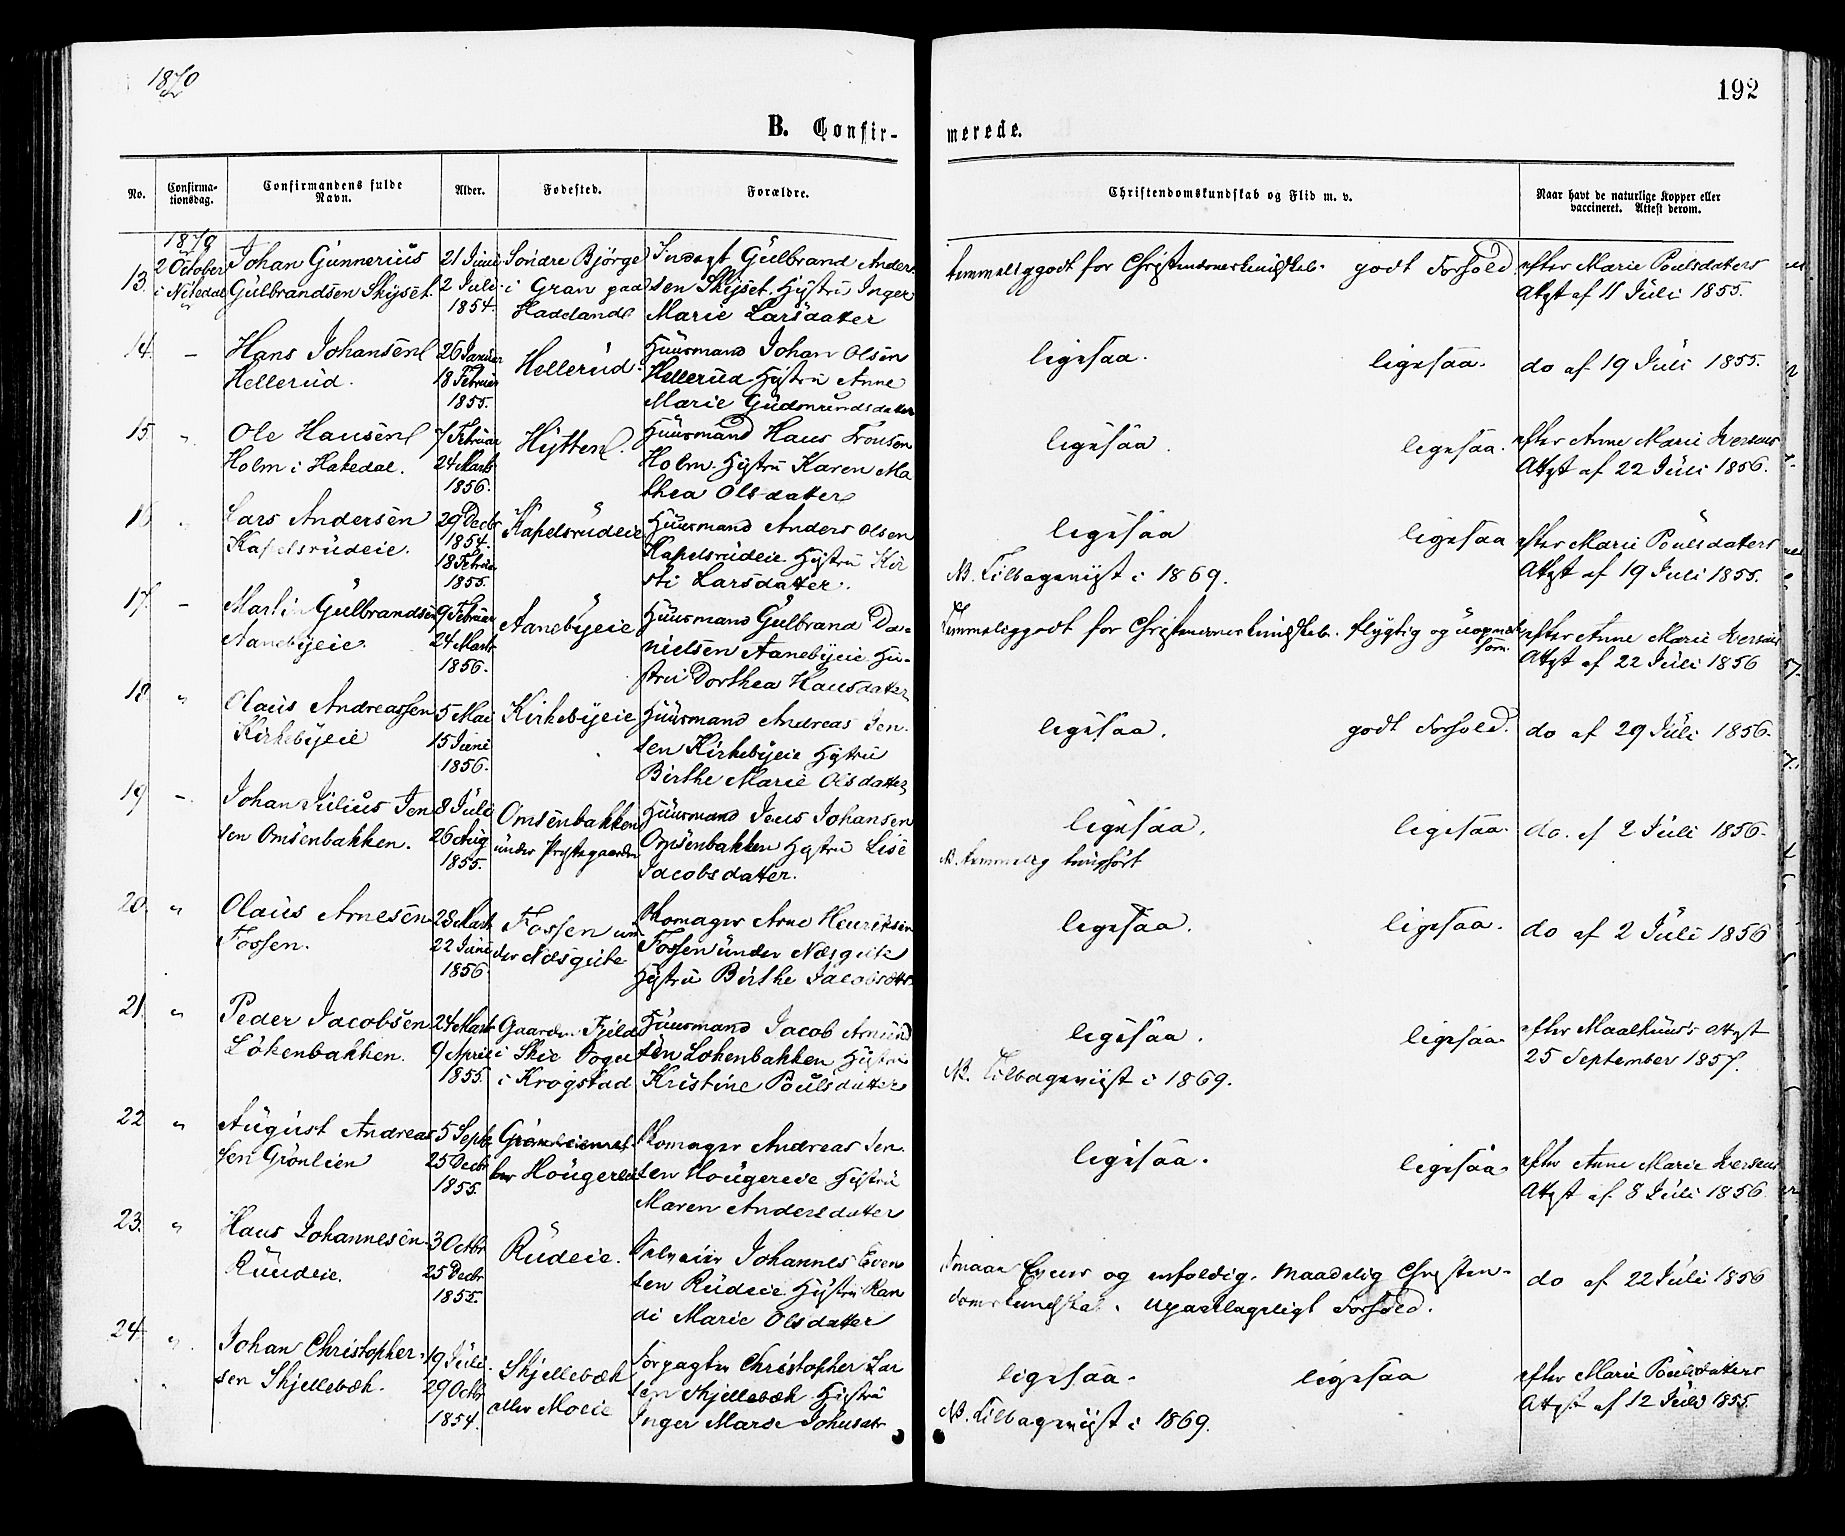 1870
192
B. Confir-
merede.
No.
Confirma-
tionsdag.
Confirmandens fulde
Navn.
Alder.
Fødested.
Forældre.
Christendomskundskab og Flid m. v.
Naar havt de naturlige Kopper eller
vaccineret. Attest derom.
1870
13.
2 October
i Nitedal
Johan Gunnerius
Gulbrandsen Skyset.
21 Juni
2 Juli
1854.
Søndre Bjørge
i Gran paa
Hadeland
Gulbrand Anders
sen Skyset. Hystru Inger
Marie Larsdatter
temmeliggodt for Christendomskundskab. godt Forhold.
efter Marie Poulsdatters
Attest af 11 Juli 1855.
14. –
Hans Johansen
Hellerud.
26 Januar
18 Februar
1855.
Hellerud.
Huusmand Johan Olsen
Hellerud. Hystru Anne
Marie Gudmundsdatter
ligesaa. ligesaa.
do af 19 Juli 1855.
15. "
Ole Hansen
Holm i Hakedal.
7 Februar
24 Marts
1856.
Hytten.
Huusmand Hans Tronsen
Holm. Hystru Karen Ma
thea Olsdatter
ligesaa. ligesaa.
efter Anne Marie Iversens
Attest af 22 Juli 1856.
16 "
Lars Andersen
Kapelsrudeie.
29 Decbr
1854.
18 Februar
1855.
Kapelsrudeie
Huusmand Anders Olsen
Kapelsrudeie. Hystru Kir
sti Larsdatter.
ligesaa ligesaa
NB. Tilbageviist i 1869.
efter Marie Poulsdatters
Attest af 19 Juli 1855.
17. –
Martin Gulbrandsen
Aanebyeie.
9 Februar
24 Marts
1856.
Aanebyeie
Huusmand Gulbrand Da-
nielsen Aanebyeie. Hu-
stru Dorthea Hansdatter
Temmeliggodt for Christendomskundskab. flygtig og uopmærk
som.
efter Anne Marie Iversens
Attest af 22 Juli 1856
18 "
Olaus Andreassen
Kirkebyeie
5 Mai
15 Juni
1856.
Kirkebyeie
Huusmand Andreas Jen-
sen Kirkebyeie Hystru
Birthe Marie Olsdatter
ligesaa. godt Forhold.
do af 29 Juli 1856.
19 –
Johan Julius Jen
sen Omsenbakken.
8 Juli
26 Aug
1855.
Omsenbakken
under Præstegaarden
Huusmand Jens Johansen
Omsenbakken Hystru Lise
Jacobsdatter.
ligesaa. ligesaa.
NB. temmelig tunghørt
do. af 2 Juli 1856.
20. "
Olaus Arnesen
Fossen.
28 Marts
22 Juni
1856
Fossen un
der Næsgube
Skomager Arne Henriksen
Fossen under
Hystru Birthe Jacobsdttr
ligesaa. ligesaa.
do af 2 Juli 1856
21. "
Peder Jacobsen
Løkenbakken.
24 Marts
9 April
1855.
Gaarden Fjeld
i Skie Sogn
i Krogstad
Huusmand Jacob Amund
sen Løkenbakken Hystru
Kristine Poulsdatter
ligesaa. ligesaa.
NB. Tilbageviist i 1869.
efter Maalkuus's Attest
25 September 1857.
22 "
August Andreas
sen Grønlien
5 Septr
25 Decbr
1855.
Hougereie
Skomager Andreas Jen
sen Hougereie Hystru
Maren Andersdatter
ligesaa. ligesaa.
efter Anne Marie Iversens
Attest af 8 Juli 1856
23. "
Hans Johannesen
Ruudeie.
3 Octbr
25 Decbr
1855.
Rudeie.
Selveier Johannes Even
sen Rudeie. Hystru Ran
di Marie Olsdatter
Smaae Evner og enfoldig. Maadelig Christen-
domskundskab. upaaklageligt Forhold.
do af 22 Juli 1856
24. "
Johan Christopher-
sen Skjellebæk.
19 Juli
29 Octbr
1854.
Skjellebæk
eller Moeie
Forpagter Christopher Lar
sen Skjellebæk. Hystru
Inger Marie Johnsdtr
ligesaa. ligesaa
NB. Tilbageviist i 1869.
efter Marie Poulsdatters
Attest af 12 Juli 1855.